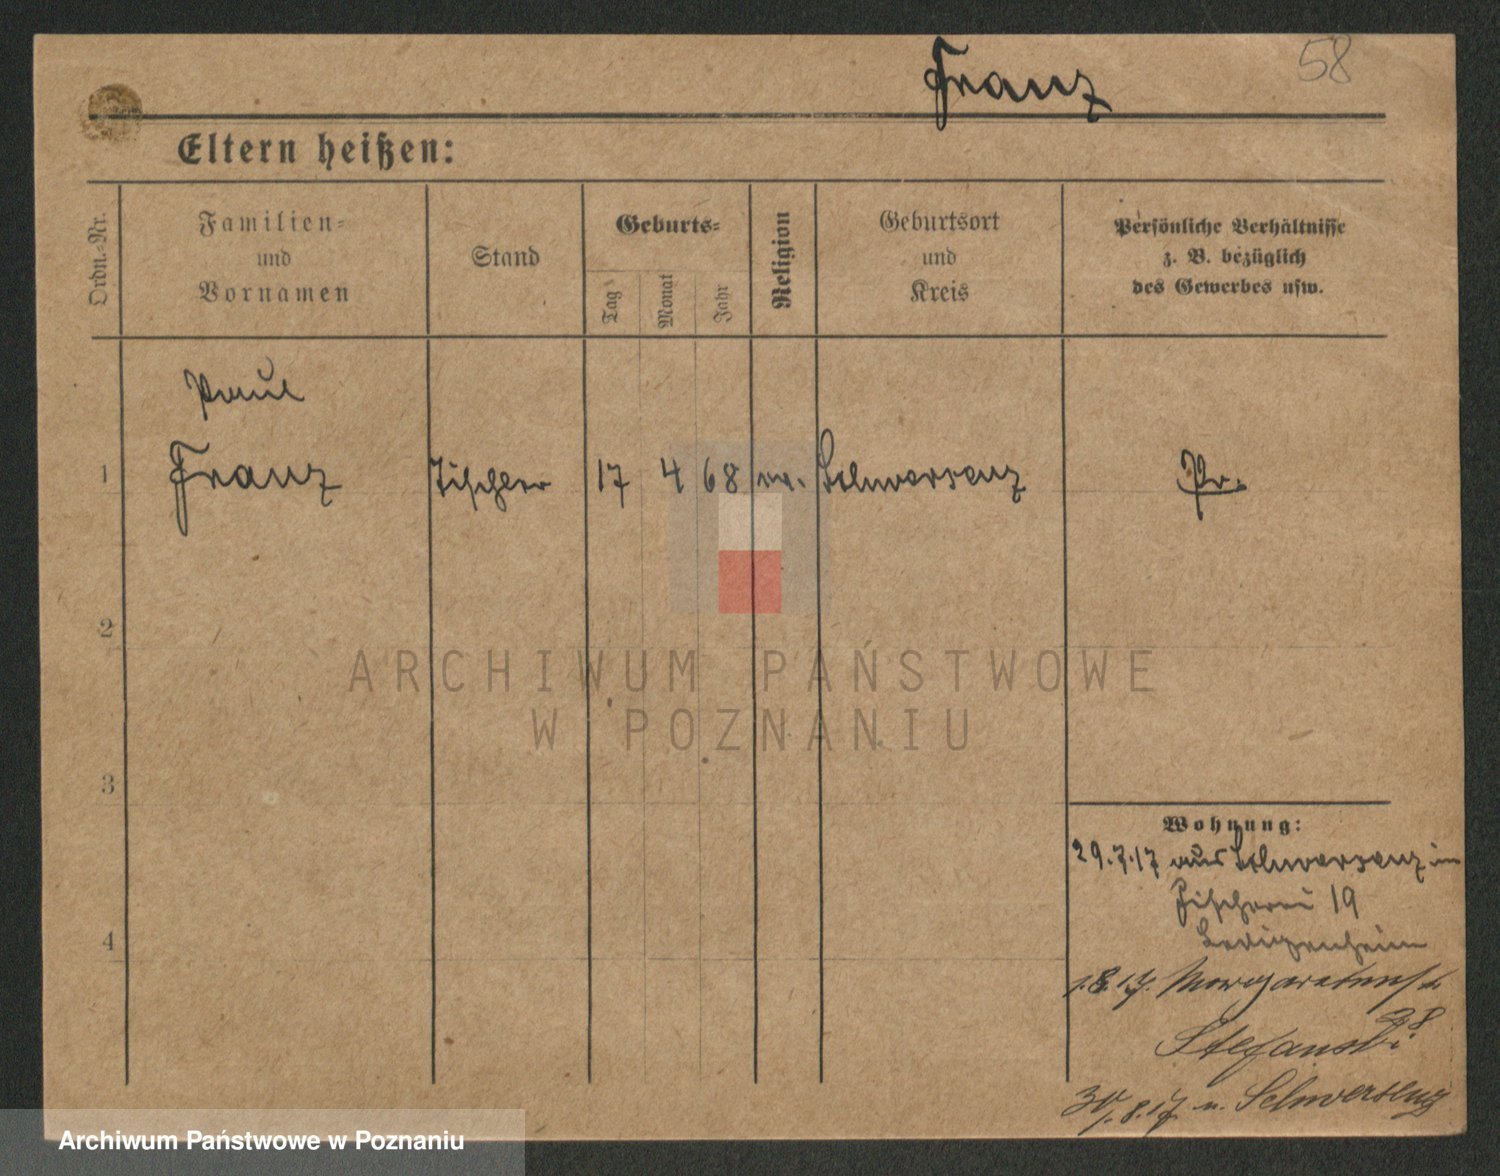 Franz 58
Eltern heißen:
Ordn.-Nr.
Familien-
und
Vornamen
Stand
Geburts-
Tag
Monat
Jahr
Religion
Geburtsort
und
Kreis
Persönliche Verhältnisse
z. B. bezüglich
des Gewerbes usw.
Paul
1 Franz Tischler 17 4 68 ev. Schwersenz Pr.
2
3
4
Wohnung:
29.7.17 aus Schwersenz in
Fischerei 19
Ledigenheim
1.8.17. Margaretenst.
28
Stefanski
30/.8.17 n. Schwersenz
ARCHIWUM PAŃSTWOWE
W POZNANIU
Archiwum Państwowe w Poznaniu